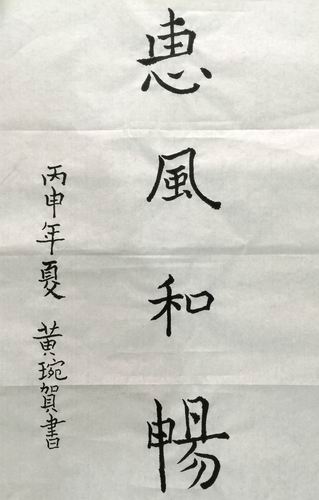 惠風和暢
丙申年夏 黃琬賀書